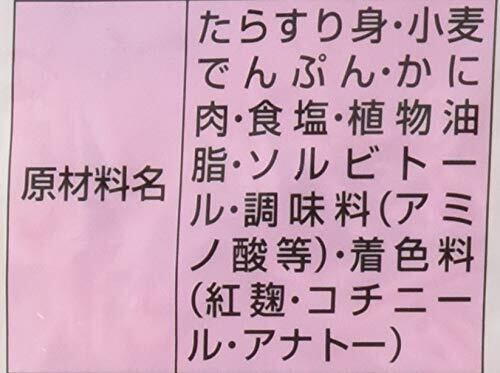 原材料名
たらすり身・小麦
でんぷん・かに
肉・食塩・植物油
脂・ソルビトー
ル・調味料(アミ
ノ酸等)・着色料
(紅麹・コチニー
ル・アナトー)